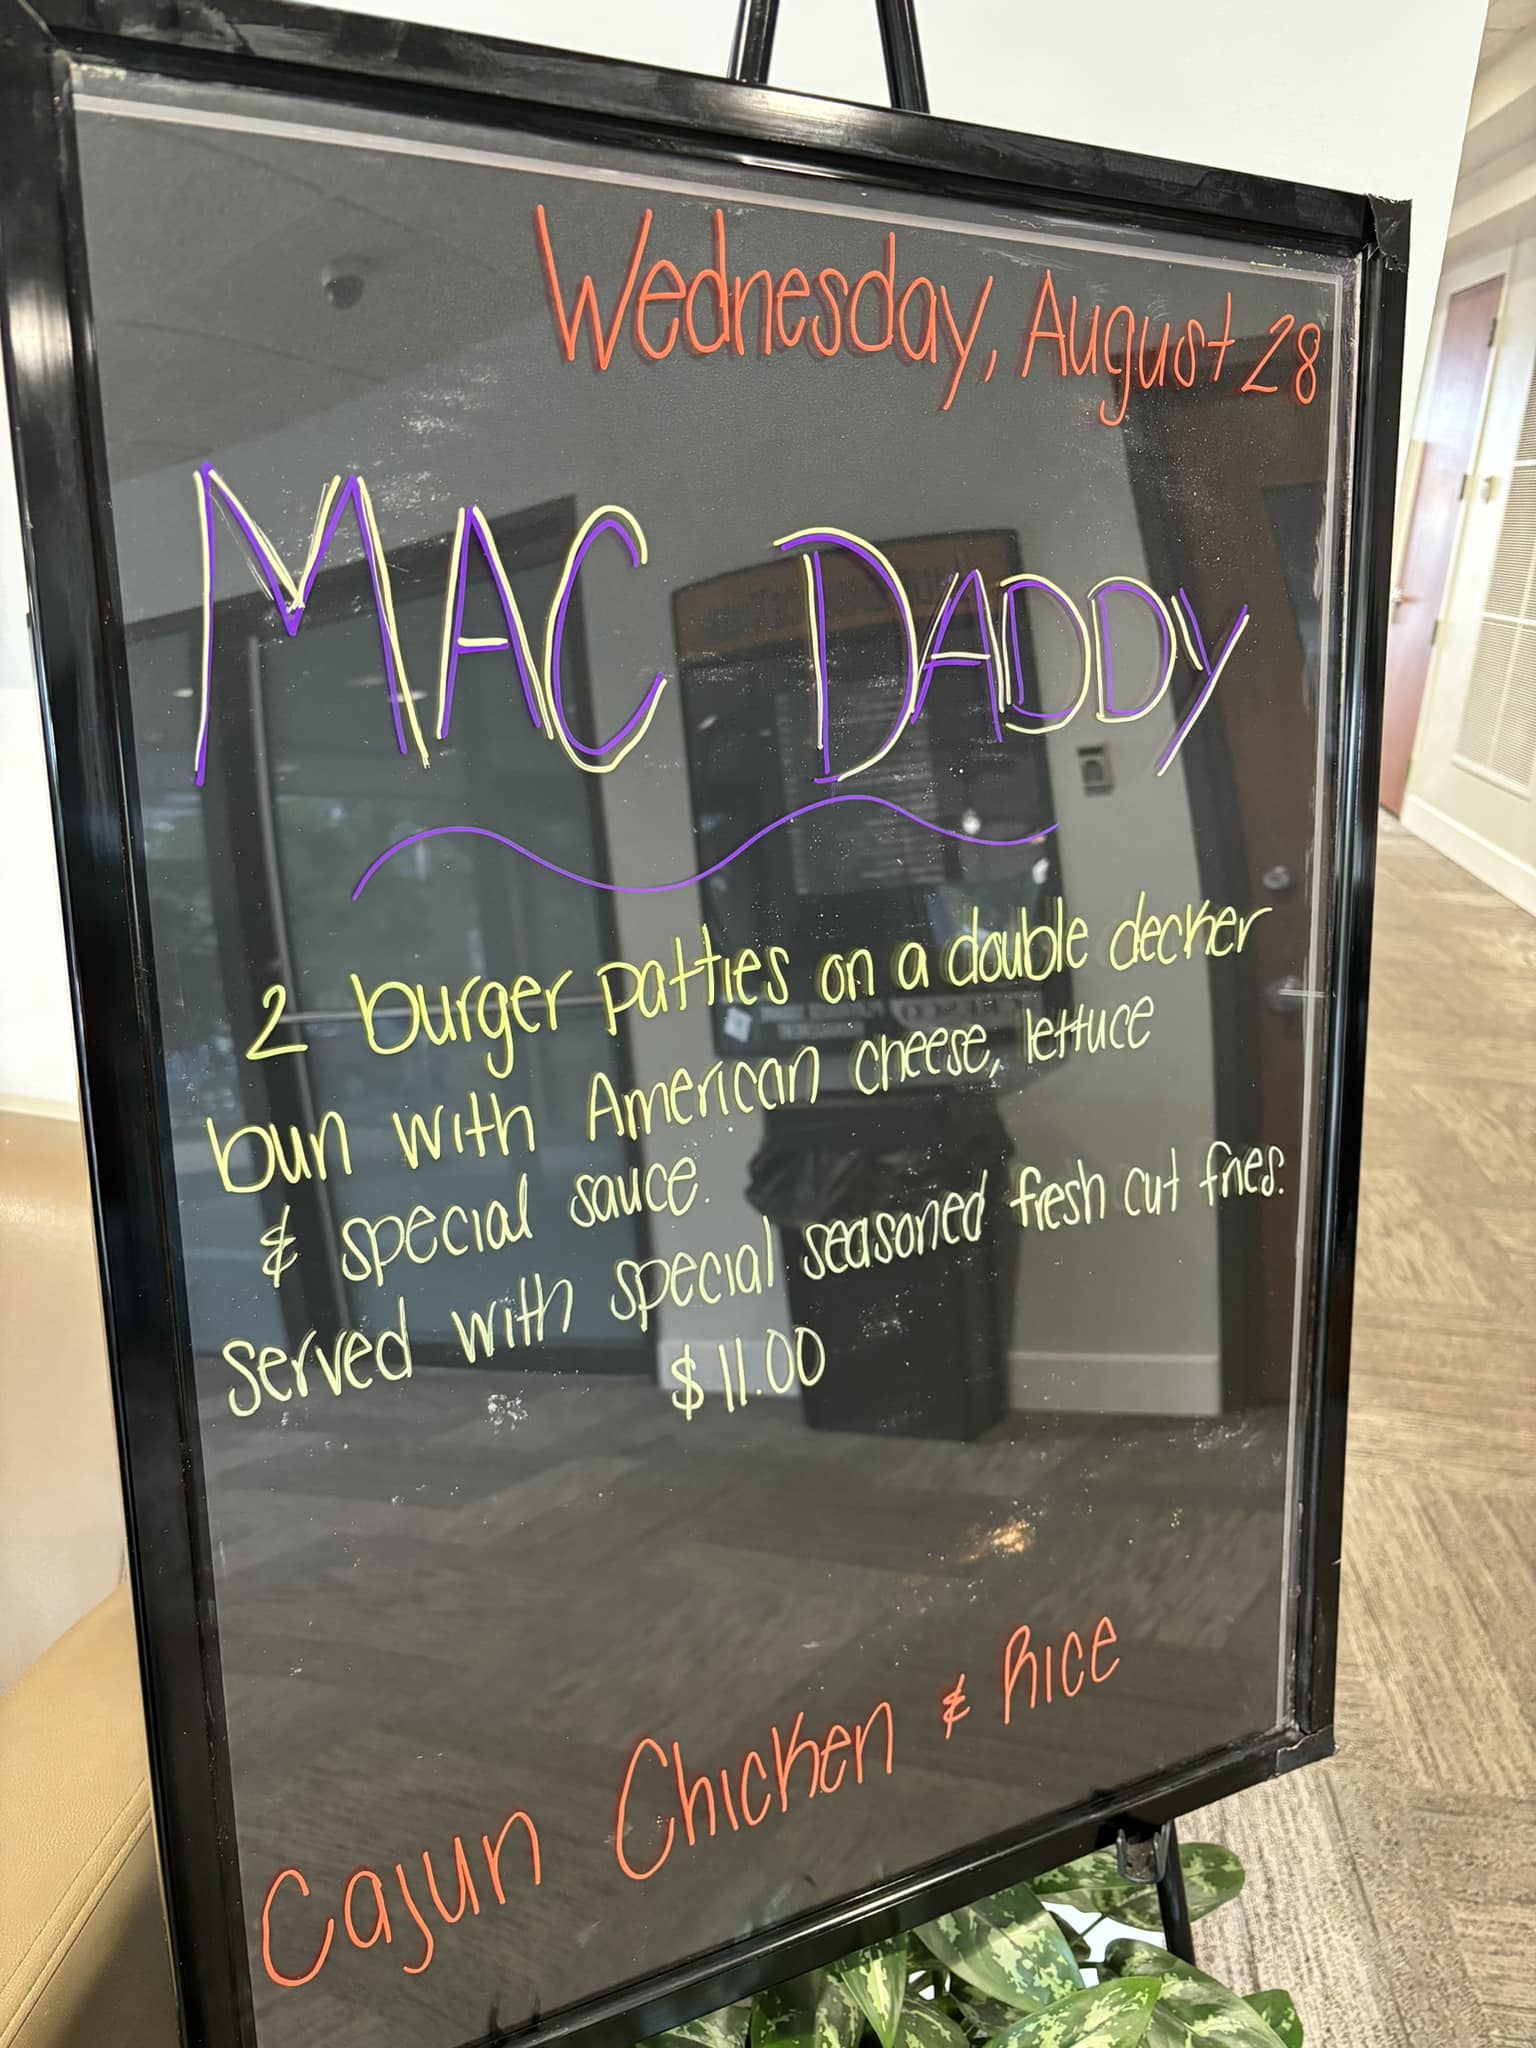 Wednesday, August 28
MAC DADDY
2 burger patties on a double decker
bun with American cheese, lettuce
& special sauce.
served with special seasoned fresh cut fries.
$11.00
Cajun Chicken & Rice